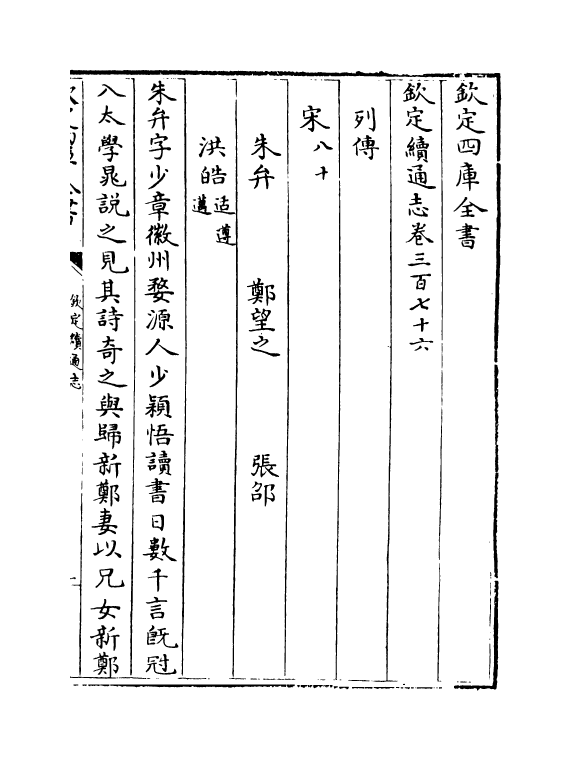 欽定四庫全書
欽定續通志卷三百七十六
列傳
宋八十
朱弁 鄭望之 張邵
洪皓适遵邁
朱弁字少章徽州婺源人少穎悟讀書日數千言旣冠
入太學晁説之見其詩奇之與歸新鄭妻以兄女新鄭
欽定續通志